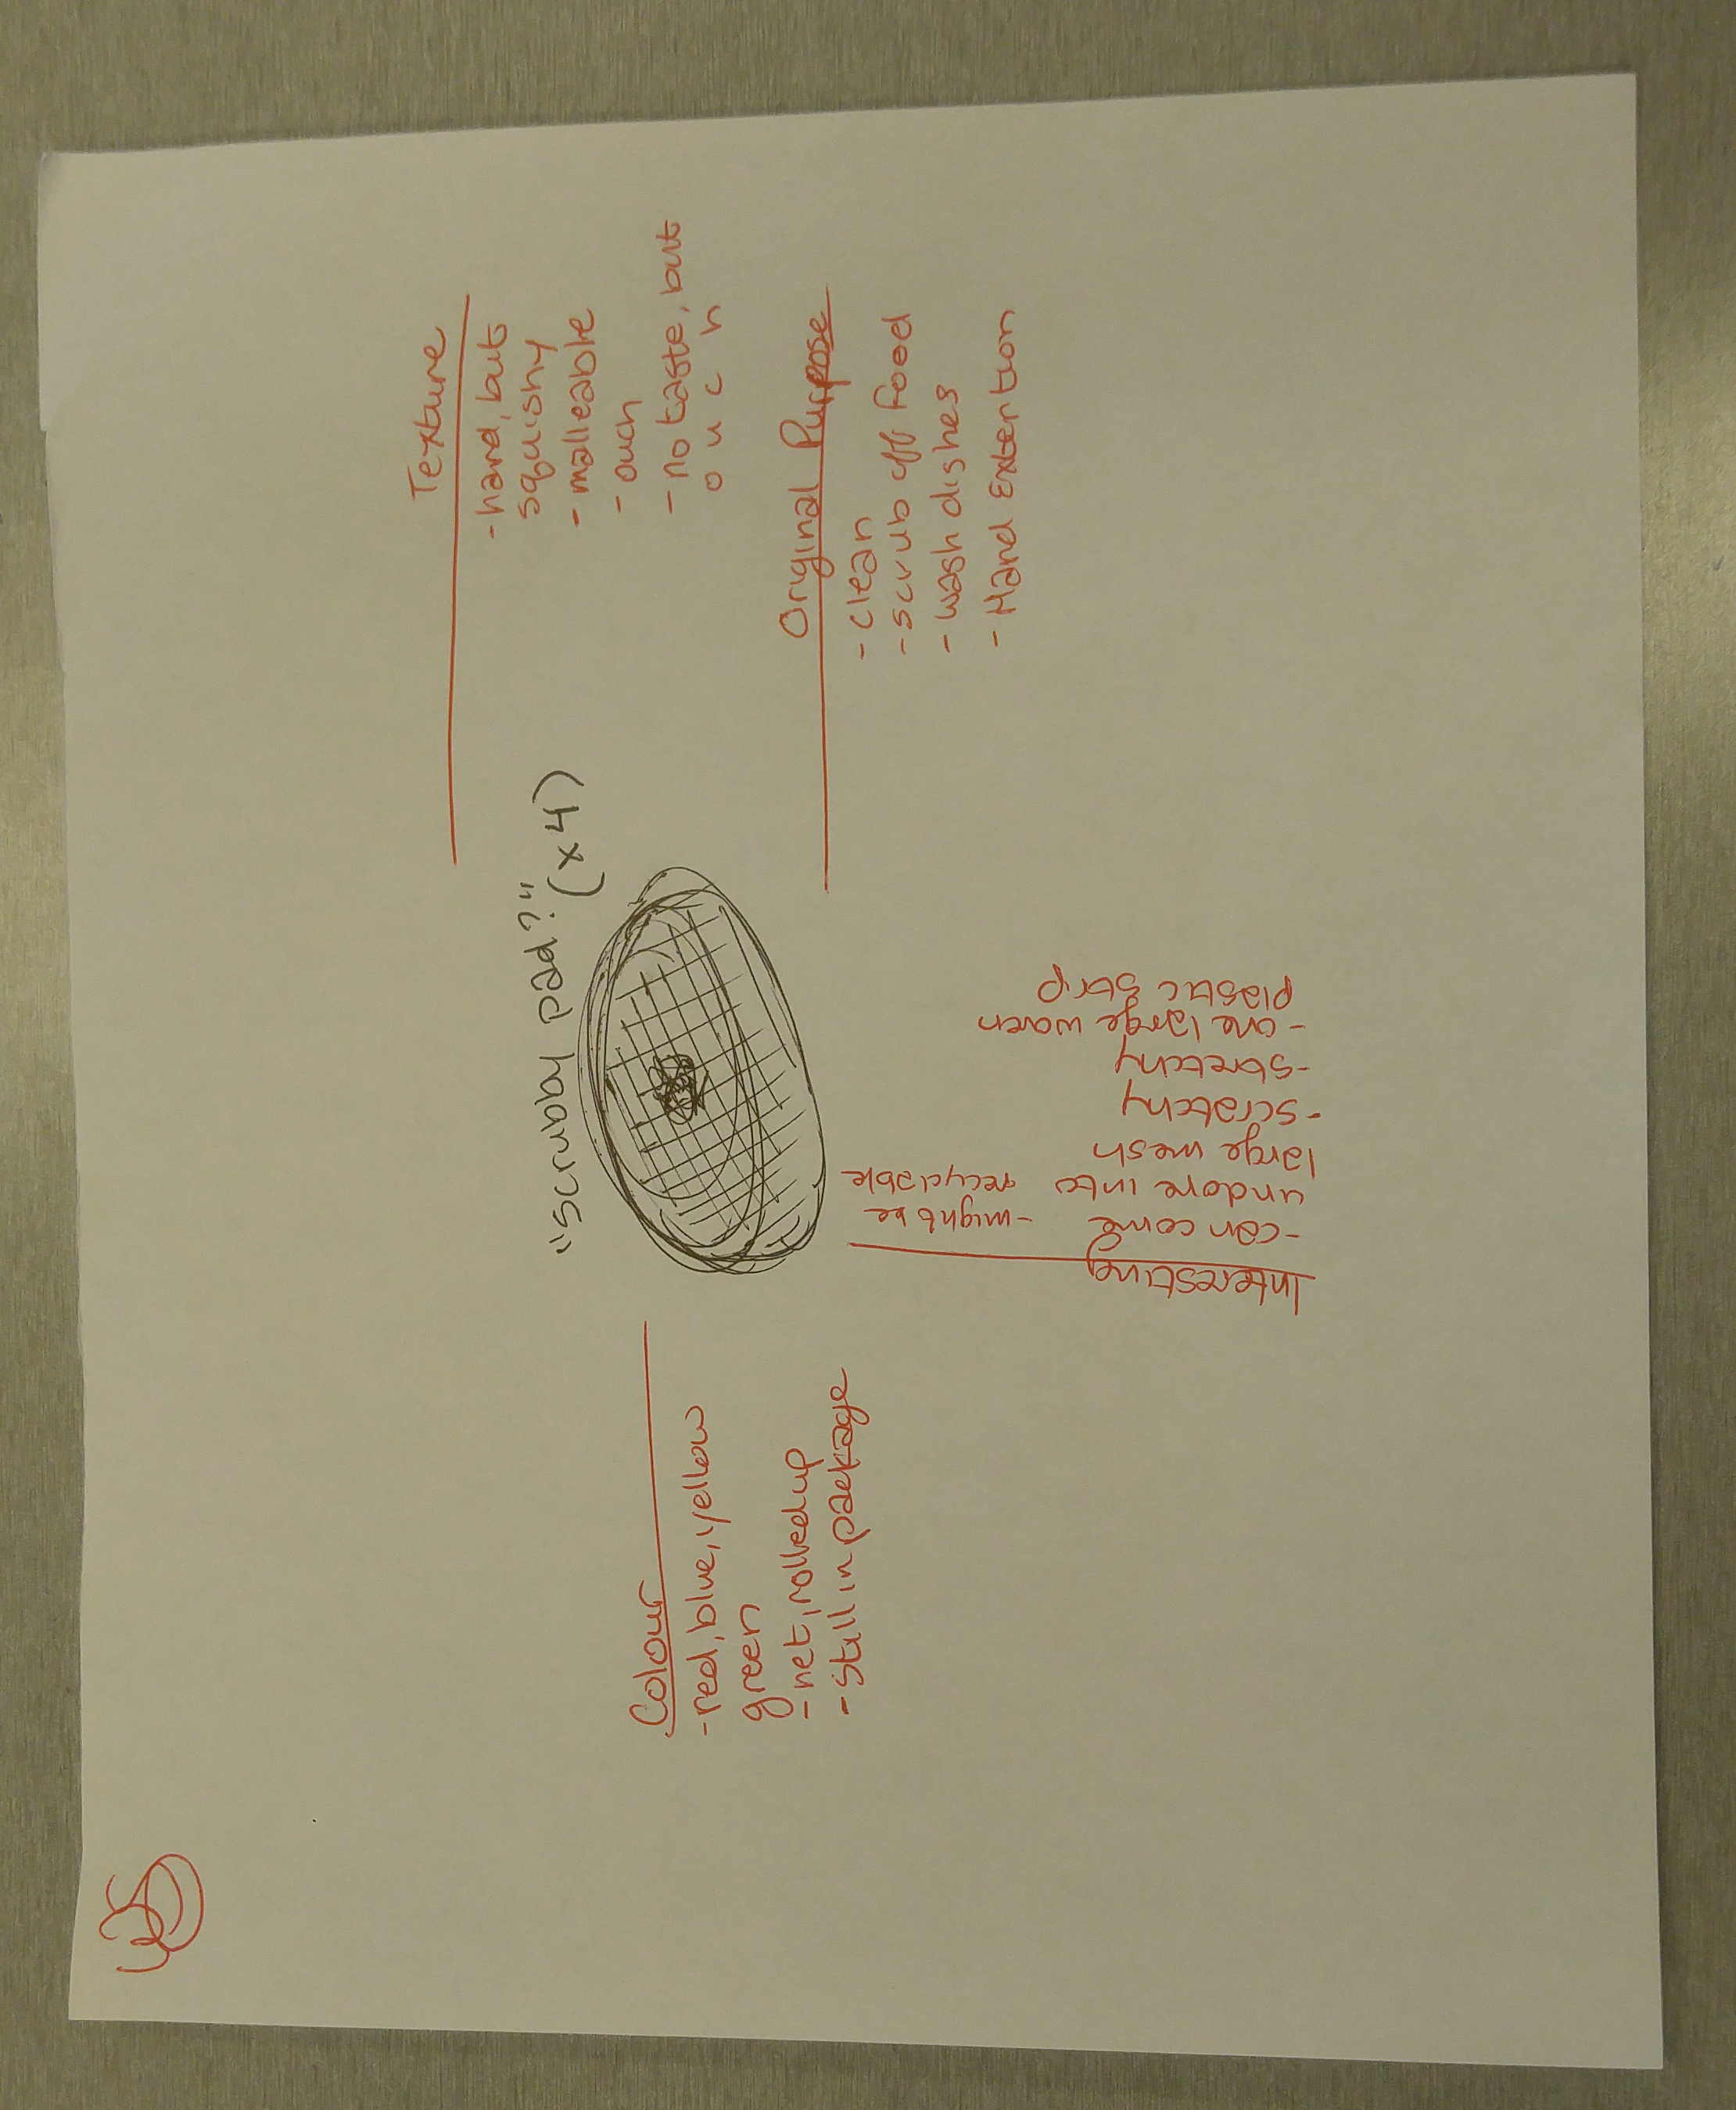 "scrubby pad?"
(x4)
Colour
-red, blue, yellow
green
-net, rolled up
-still in package
Texture
-hard, but
squishy
-malleable
-ouch
-no taste, but
o u c h
Original Purpose
-clean
-scrub off food
-wash dishes
-Hand Extention
Interesting
-can come
undone into
large mesh
-scratchy
-stretchy
-one large woven
plastic strip
-might be
recyclable